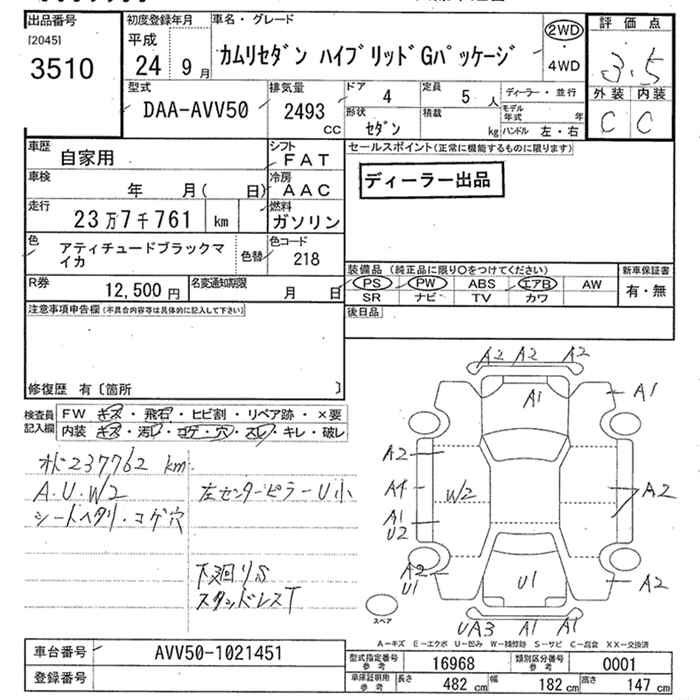 出品番号 初度登録年月 車名・グレード 評価点
[2045] 平成
3510 24 9月 カムリセダン ハイブリッドGパッケージ 2WD・4WD 3.5
外装 内装
C C
型式 排気量 ドア 4 定員 5人 ディーラー・並行
DAA-AVV50 2493 CC 形状 セダン 積載 kg モデル年式 年
ハンドル 左・右
車歴 自家用 シフト FAT セールスポイント(正常に機能するものに限ります)
車検 年 月( 日) 冷房 AAC ディーラー出品
走行 23万7千761 km 燃料 ガソリン
色 アティチュードブラックマイカ 色替 色コード 218
R券 12,500円 名変通知期限 月 日
装備品(純正品に限り○をつけてください) 新車保証書
PS PW ABS エアB AW 有・無
SR ナビ TV カワ
後日品
注意事項申告欄(不具合内容等は具体的に記入して下さい)
修復歴 有〔箇所 〕
検査員記入欄 FW キズ・飛石・ヒビ割・リペア跡・×要
内装 キズ・汚レ・コゲ・穴・スレ・キレ・破レ
メド237762 km
A.U.W2
シートヘタリ・コゲ穴
左センターピラーU小
下廻りS
スタッドレスT
A2 A2 A2
A1 A1
A2
A4 W2 A2
A1
U2
A2
U1 U1 A2
スペア
UA3 A1 A1
A-キズ E-エクボ U-凹み W-補修跡 S-サビ C-腐食 XX-交換済
車台番号 AVV50-1021451
登録番号
型式指定番号 参考 16968 類別区分番号 参考 0001
車庫証明用 参考 長さ 482cm 幅 182cm 高さ 147cm